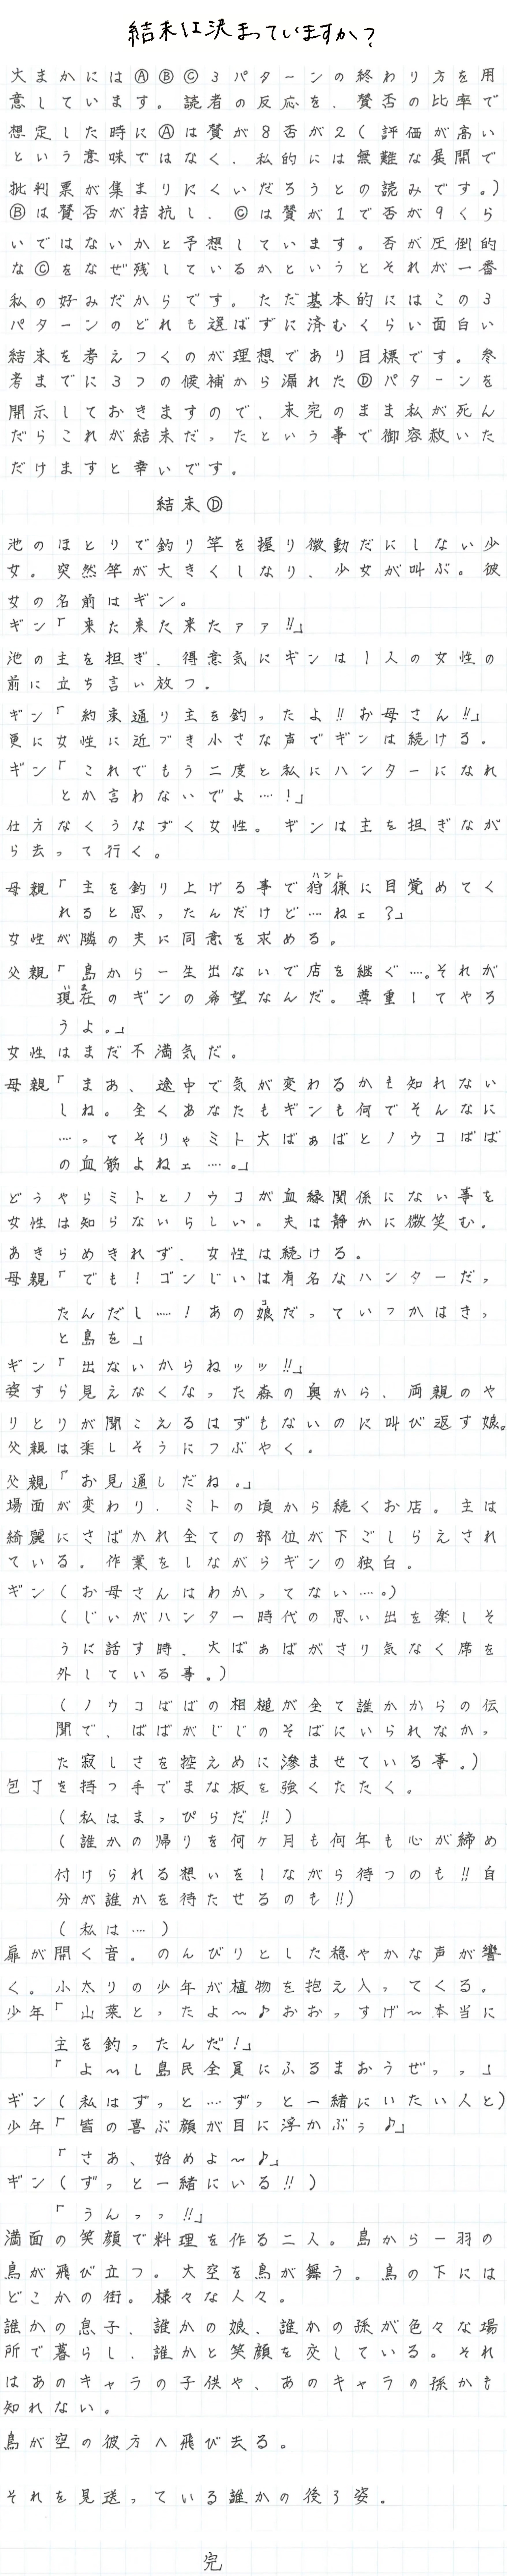 結末は決まっていますか?
大まかにはⒶⒷⒸ3パターンの終わり方を用
意しています。読者の反応を、賛否の比率で
想定した時にⒶは賛が8否が2(評価が高い
という意味ではなく、私的には無難な展開で
批判票が集まりにくいだろうとの読みです。)
Ⓑは賛否が拮抗し、Ⓒは賛が1で否が9くら
いではないかと予想しています。否が圧倒的
なⒸをなぜ残しているかというとそれが一番
私の好みだからです。ただ基本的にはこの3
パターンのどれも選ばずに済むくらい面白い
結末を考えつくのが理想であり目標です。参
考までに3つの候補から漏れたⒹパターンを
開示しておきますので、未完のまま私が死ん
だらこれが結末だったという事で御容赦いた
だけますと幸いです。
結末Ⓓ
池のほとりで釣り竿を握り微動だにしない少
女。突然竿が大きくしなり、少女が叫ぶ。彼
女の名前はギン。
ギン「来た来た来たァァ!!」
池の主を担ぎ、得意気にギンは1人の女性の
前に立ち言い放つ。
ギン「約束通り主を釣ったよ!!お母さん!!」
更に女性に近づき小さな声でギンは続ける。
ギン「これでもう二度と私にハンターになれ
とか言わないでよ…!」
仕方なくうなずく女性。ギンは主を担ぎなが
ら去って行く。
母親「主を釣り上げる事で狩猟(ハント)に目覚めてく
れると思ったんだけど…ねェ?」
女性が隣の夫に同意を求める。
父親「島から一生出ないで店を継ぐ…。それが
現在(いま)のギンの希望なんだ。尊重してやろ
うよ。」
女性はまだ不満気だ。
母親「まあ、途中で気が変わるかも知れない
しね。全くあなたもギンも何でそんなに
…ってそりゃミト大ばぁばとノウコばば
の血筋よねェ…。」
どうやらミトとノウコが血縁関係にない事を
女性は知らないらしい。夫は静かに微笑む。
あきらめきれず、女性は続ける。
母親「でも!ゴンじいは有名なハンターだっ
たんだし…!あの娘(コ)だっていつかはきっ
と島を」
ギン「出ないからねッッ!!」
姿すら見えなくなった森の奥から、両親のや
りとりが聞こえるはずもないのに叫び返す娘。
父親は楽しそうにつぶやく。
父親「お見通しだね。」
場面が変わり、ミトの頃から続くお店。主は
綺麗にさばかれ全ての部位が下ごしらえされ
ている。作業をしながらギンの独白。
ギン(お母さんはわかってない…。)
(じいがハンター時代の思い出を楽しそ
うに話す時、大ばぁばがさり気なく席を
外している事。)
(ノウコばばの相槌が全て誰かからの伝
聞で、ばばがじじのそばにいられなかっ
た寂しさを控えめに滲ませている事。)
包丁を持つ手でまな板を強くたたく。
(私はまっぴらだ!!)
(誰かの帰りを何ヶ月も何年も心が締め
付けられる想いをしながら待つのも!!自
分が誰かを待たせるのも!!)
(私は…)
扉が開く音。のんびりとした穏やかな声が響
く。小太りの少年が植物を抱え入ってくる。
少年「山菜とったよ～♪おおっすげ～本当に
主を釣ったんだ!」
「よ～し島民全員にふるまおうぜっっ」
ギン(私はずっと…ずっと一緒にいたい人と)
少年「皆の喜ぶ顔が目に浮かぶぅ♪」
「さあ、始めよ～♪」
ギン(ずっと一緒にいる!!)
「うんっっ!!」
満面の笑顔で料理を作る二人。島から一羽の
鳥が飛び立つ。大空を鳥が舞う。鳥の下には
どこかの街。様々な人々。
誰かの息子、誰かの娘、誰かの孫が色々な場
所で暮らし、誰かと笑顔を交している。それ
はあのキャラの子供や、あのキャラの孫かも
知れない。
鳥が空の彼方へ飛び去る。
それを見送っている誰かの後ろ姿。
完